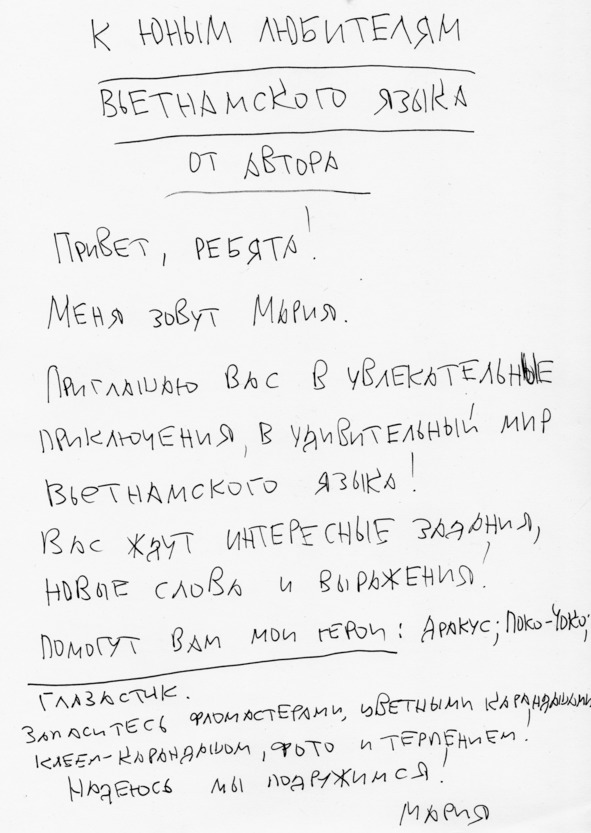 К ЮНЫМ ЛЮБИТЕЛЯМ
ВЬЕТНАМСКОГО ЯЗЫКА
ОТ АВТОРА
ПРИВЕТ, РЕБЯТА!
МЕНЯ ЗОВУТ МАРИЯ.
ПРИГЛАШАЮ ВАС В УВЛЕКАТЕЛЬНЫЕ
ПРИКЛЮЧЕНИЯ, В УДИВИТЕЛЬНЫЙ МИР
ВЬЕТНАМСКОГО ЯЗЫКА!
ВАС ЖДУТ ИНТЕРЕСНЫЕ ЗАДАНИЯ,
НОВЫЕ СЛОВА И ВЫРАЖЕНИЯ!
ПОМОГУТ ВАМ МОИ ГЕРОИ: АРАКУС; ПОКО-ЧОКО;
ГЛАЗАСТИК.
ЗАПАСИТЕСЬ ФЛОМАСТЕРАМИ, ЦВЕТНЫМИ КАРАНДАШАМИ
КЛЕЕМ-КАРАНДАШОМ, ФОТО И ТЕРПЕНИЕМ!
НАДЕЮСЬ МЫ ПОДРУЖИМСЯ!
МАРИЯ